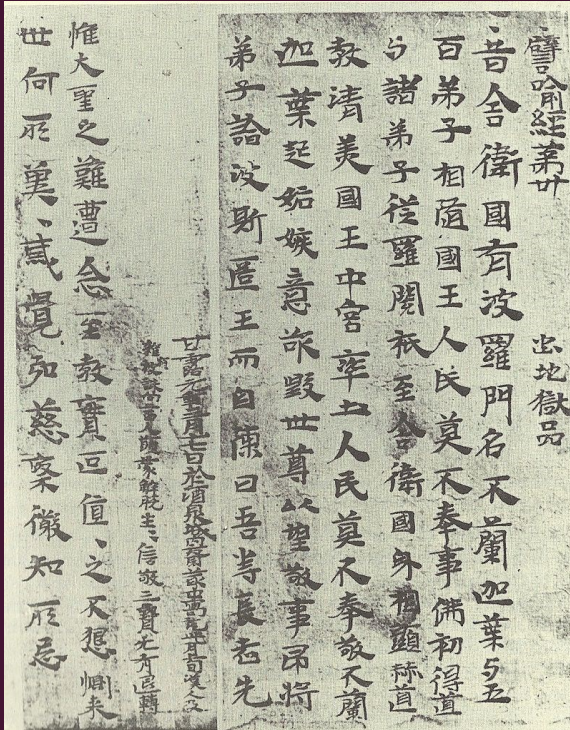 譬喻經第卅 出地獄品
昔舍衛國有波羅門名不蘭迦葉与五
百弟子相隨國王人民莫不奉事佛初得道
与諸弟子從羅閱祇至舍衛國身相顯赫道
教清美國王中宮率土人民莫不奉敬不蘭
加葉起妬嫉意欲毀世尊以望敬事昂將
弟子詣波斯匿王而自陳曰吾等長老先
甘露元年三月十七日於酒泉城內齋叢中寫訖此月上旬漢人及
雜類被誅向二百人願蒙解脫生、信敬三寶无有退轉
惟大聖之難遭念至教寶叵值、之不懇惻来
世何所冀、覺知慈徵知所忌